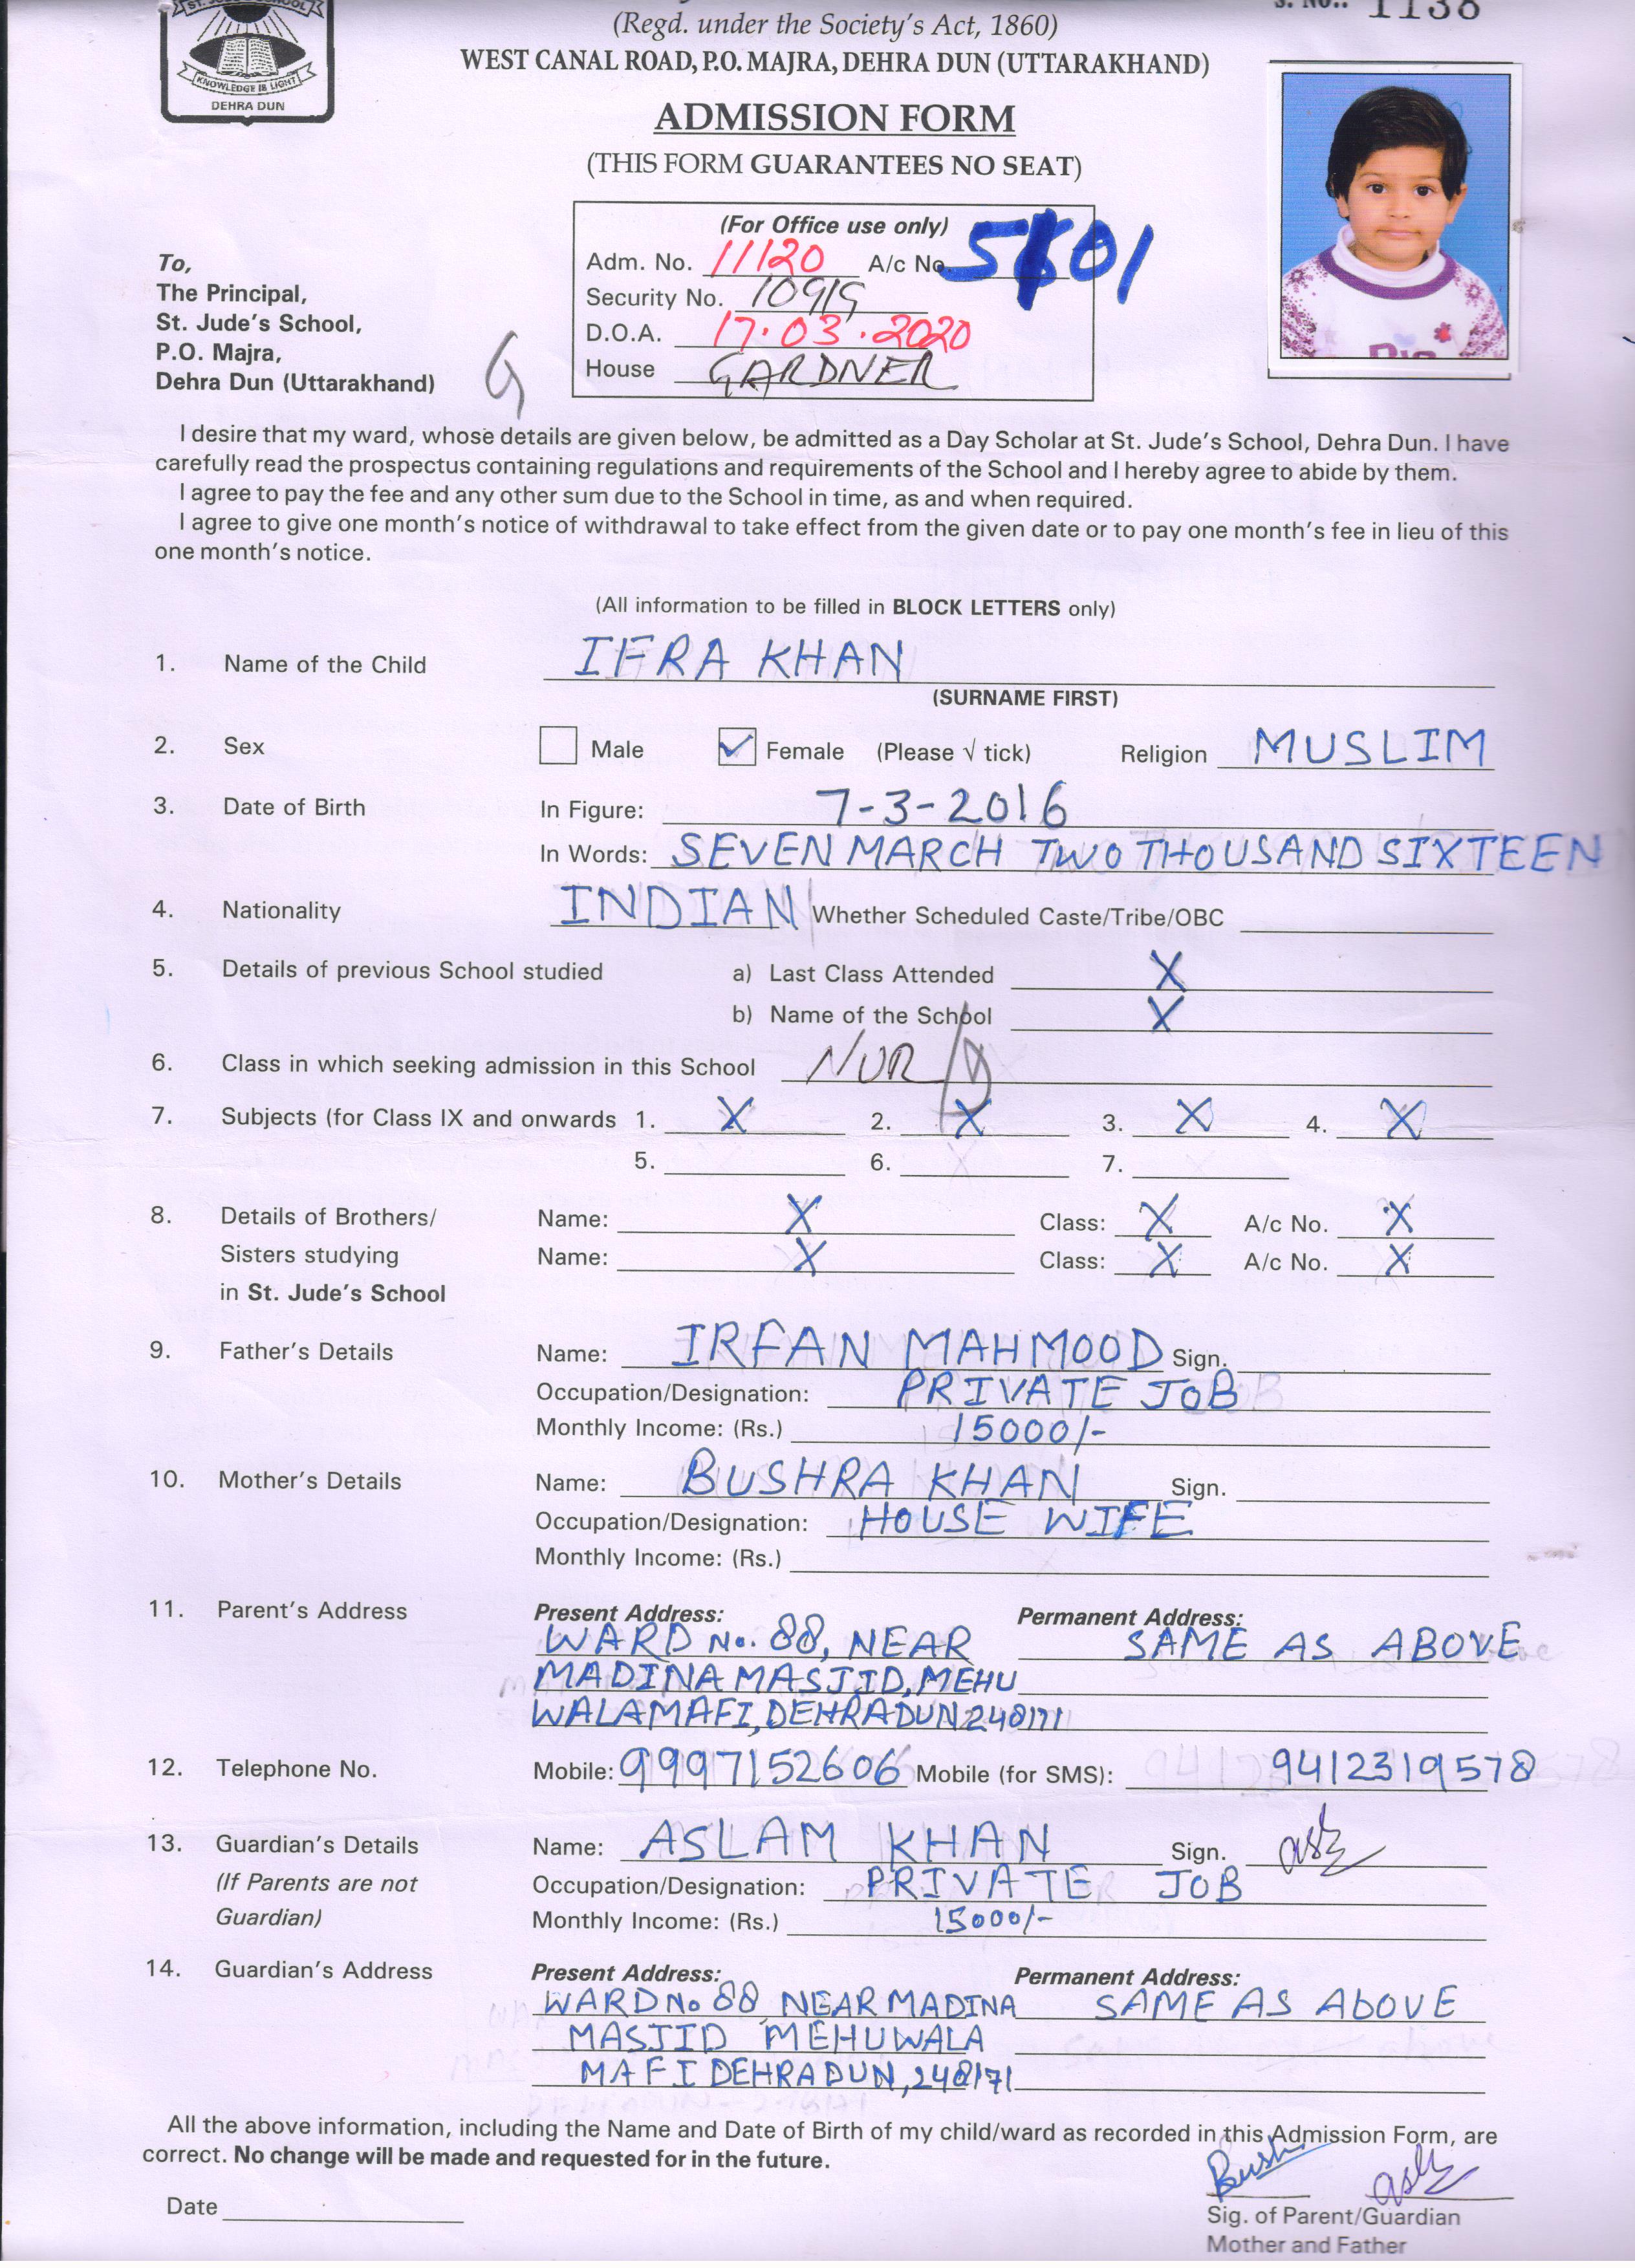 ST. JUDE'S SCHOOL
KNOWLEDGE IS LIGHT
DEHRA DUN
S. No.: 1138
(Regd. under the Society's Act, 1860)
WEST CANAL ROAD, P.O. MAJRA, DEHRA DUN (UTTARAKHAND)
ADMISSION FORM
(THIS FORM GUARANTEES NO SEAT)
(For Office use only)
Adm. No. 11120 A/c No.
Security No. 10919
D.O.A. 17.03.2020
House GARDNER
To,
The Principal,
St. Jude's School,
P.O. Majra,
Dehra Dun (Uttarakhand)
G
I desire that my ward, whose details are given below, be admitted as a Day Scholar at St. Jude's School, Dehra Dun. I have
carefully read the prospectus containing regulations and requirements of the School and I hereby agree to abide by them.
I agree to pay the fee and any other sum due to the School in time, as and when required.
I agree to give one month's notice of withdrawal to take effect from the given date or to pay one month's fee in lieu of this
one month's notice.
(All information to be filled in BLOCK LETTERS only)
1. Name of the Child IFRA KHAN
(SURNAME FIRST)
2. Sex Male ✓ Female (Please √ tick) Religion MUSLIM
3. Date of Birth In Figure: 7-3-2016
In Words: SEVEN MARCH TWO THOUSAND SIXTEEN
4. Nationality INDIAN Whether Scheduled Caste/Tribe/OBC
5. Details of previous School studied a) Last Class Attended X
b) Name of the School X
6. Class in which seeking admission in this School NUR
7. Subjects (for Class IX and onwards 1. X 2. X 3. X 4. X
5. 6. 7.
8. Details of Brothers/ Name: X Class: X A/c No. X
Sisters studying Name: X Class: X A/c No. X
in St. Jude's School
9. Father's Details Name: IRFAN MAHMOOD Sign.
Occupation/Designation: PRIVATE JOB
Monthly Income: (Rs.) 15000/-
10. Mother's Details Name: BUSHRA KHAN Sign.
Occupation/Designation: HOUSE WIFE
Monthly Income: (Rs.)
11. Parent's Address Present Address: Permanent Address:
WARD No. 88, NEAR SAME AS ABOVE
MADINA MASJID, MEHU
WALAMAFI, DEHRADUN 248171
12. Telephone No. Mobile: 9997152606 Mobile (for SMS): 9412319578
13. Guardian's Details Name: ASLAM KHAN Sign.
(If Parents are not Occupation/Designation: PRIVATE JOB
Guardian) Monthly Income: (Rs.) 15000/-
14. Guardian's Address Present Address: Permanent Address:
WARD No 88 NEAR MADINA SAME AS AbOVE
MASJID MEHUWALA
MAFI DEHRADUN, 248171
All the above information, including the Name and Date of Birth of my child/ward as recorded in this Admission Form, are
correct. No change will be made and requested for in the future.
Date
Sig. of Parent/Guardian
Mother and Father